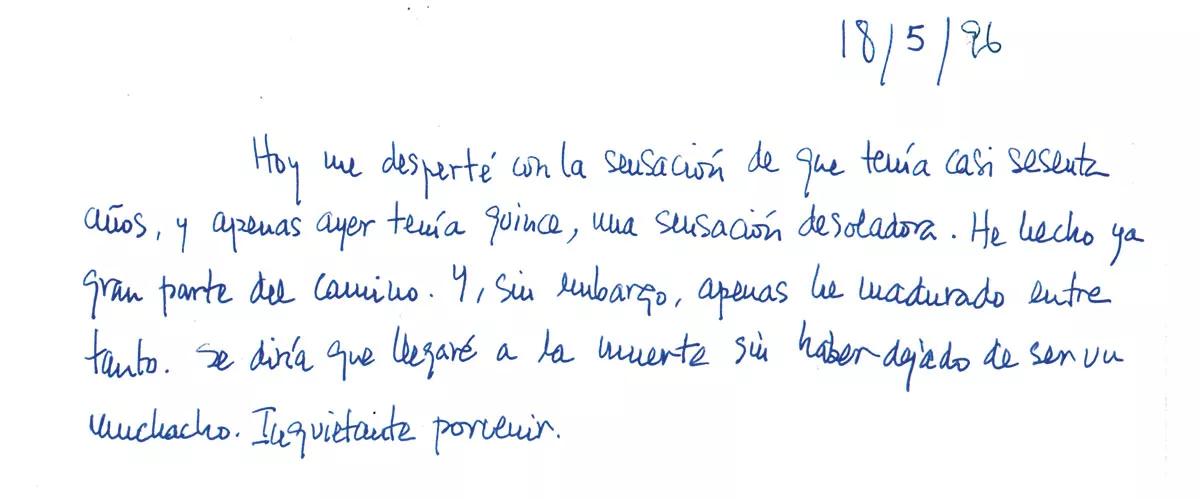 18/5/96
Hoy me desperté con la sensación de que tenía casi sesenta
años, y apenas ayer tenía quince, una sensación desoladora. He hecho ya
gran parte del camino. Y, sin embargo, apenas he madurado entre
tanto. Se diría que llegaré a la muerte sin haber dejado de ser un
muchacho. Inquietante porvenir.